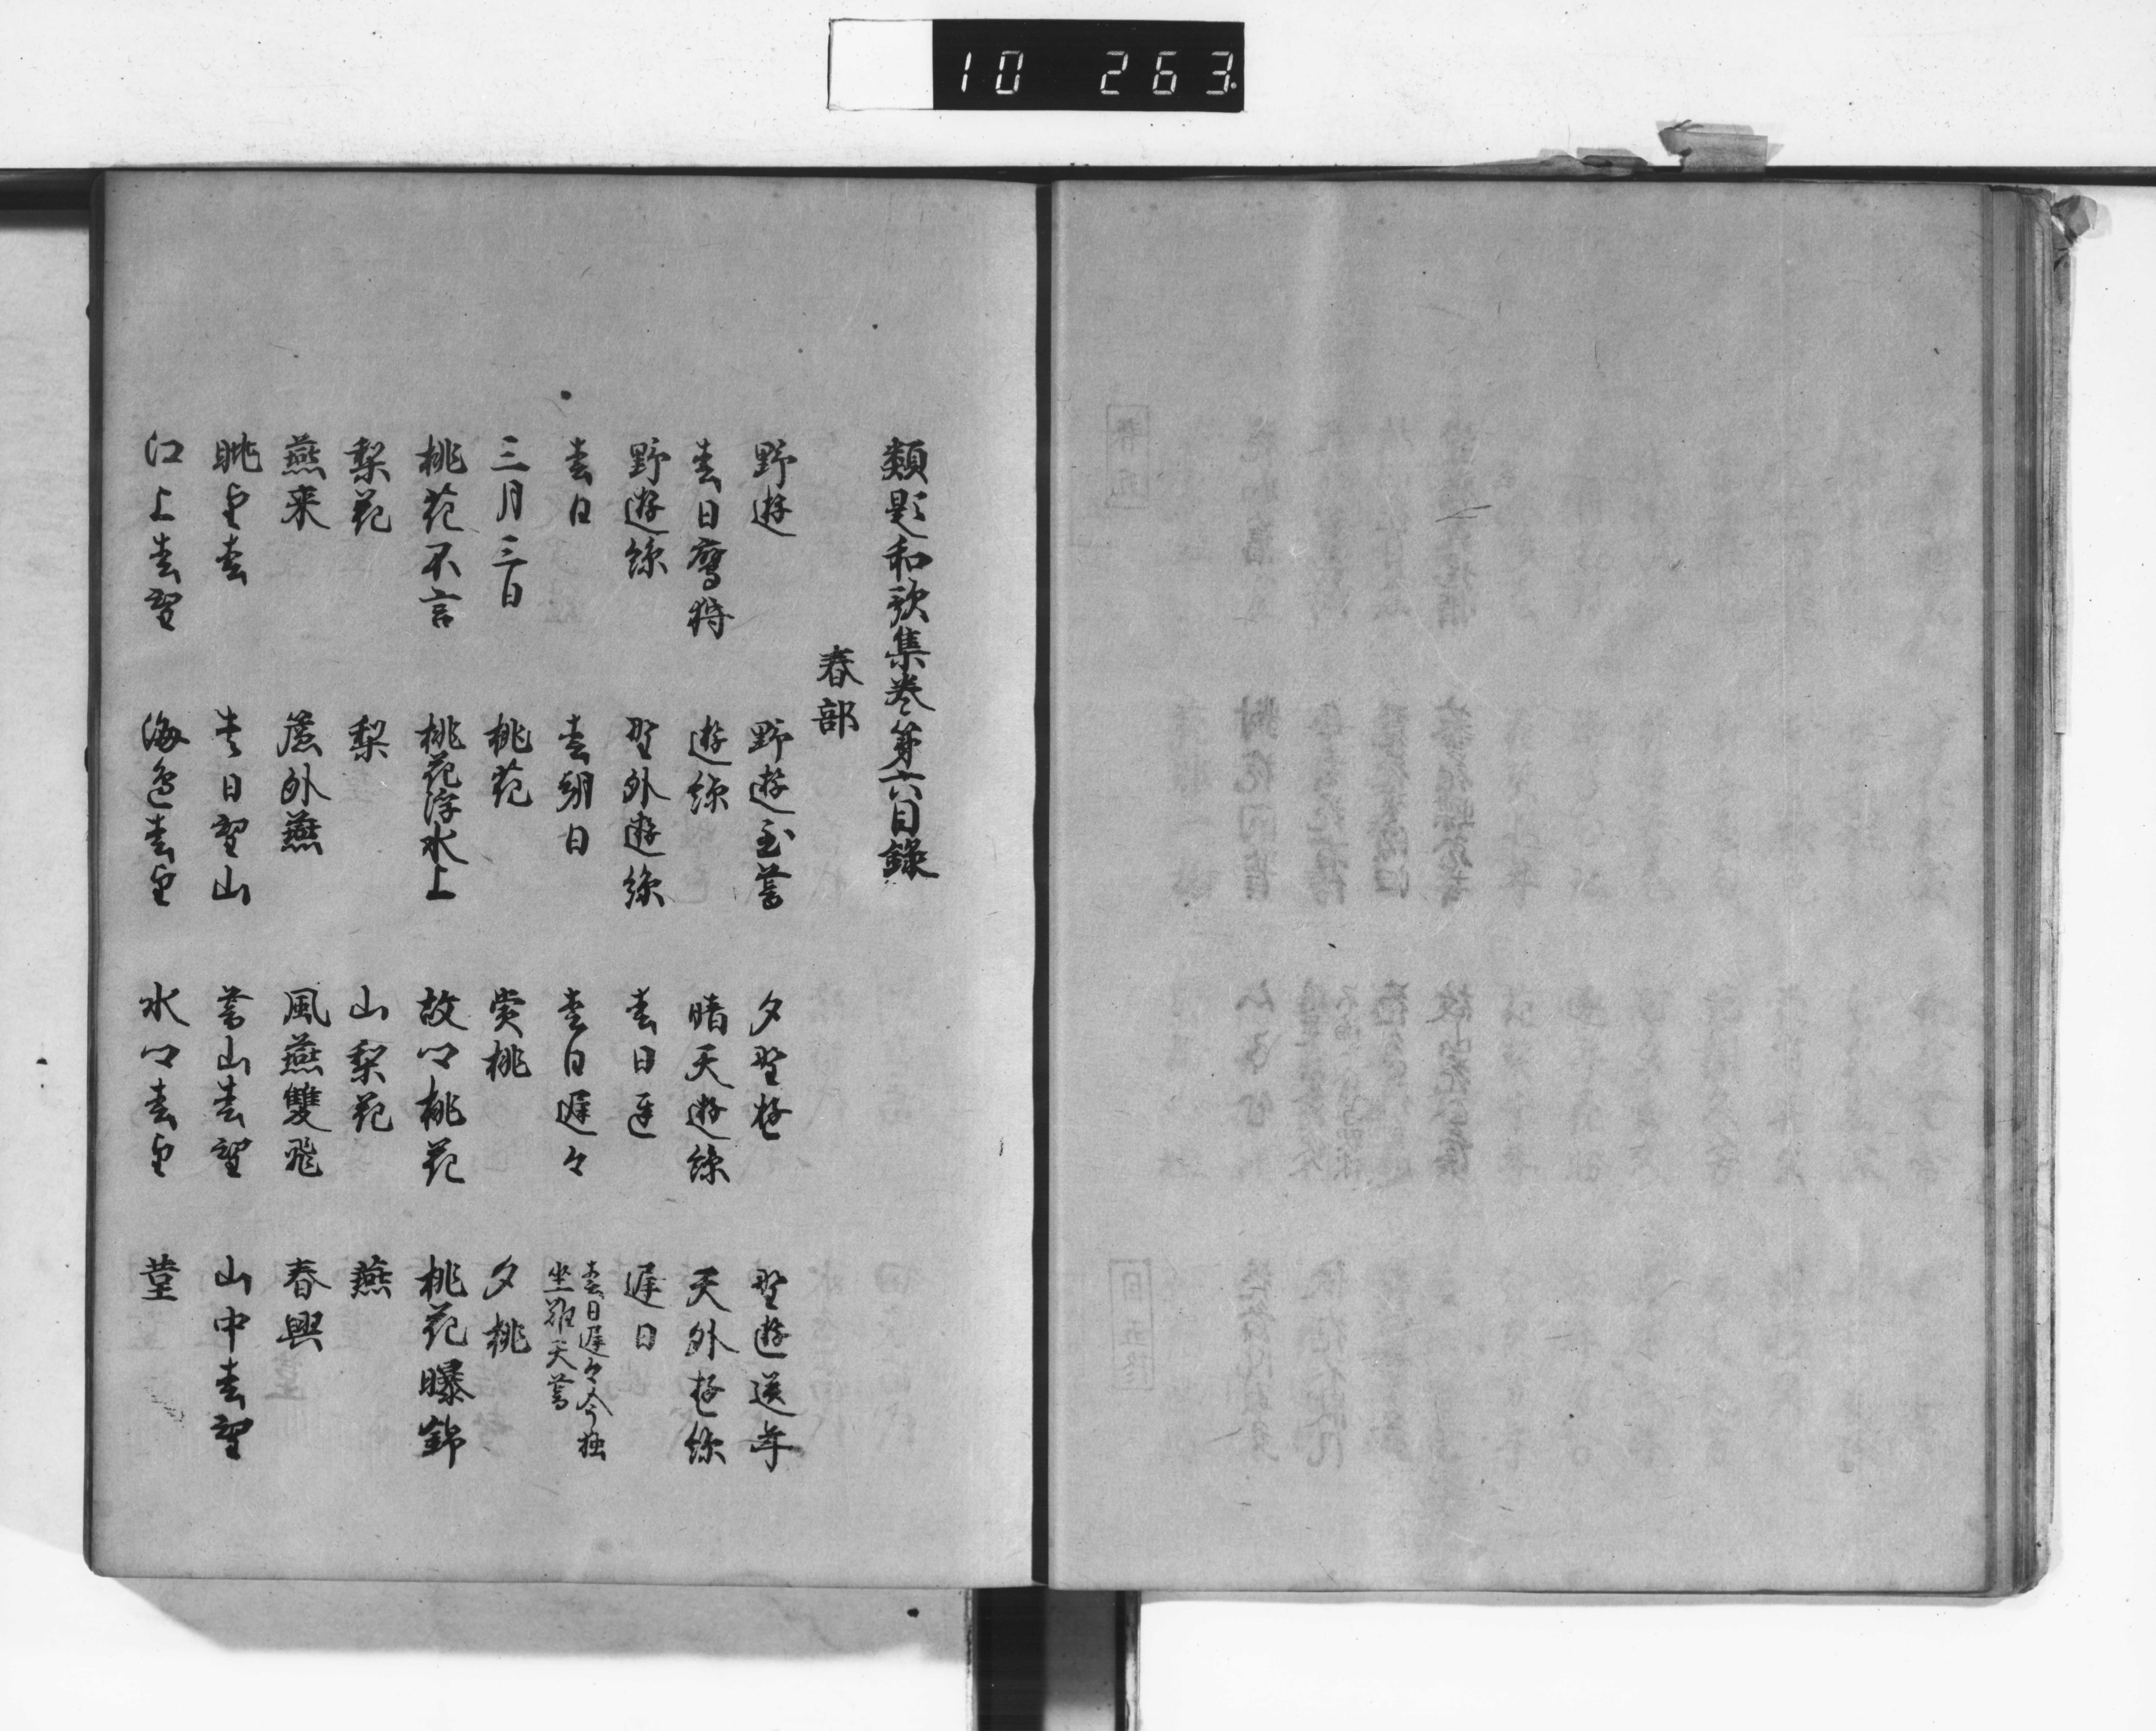 10 263
類題和歌集巻第六目録
春部
野遊 野遊至暮 夕野遊 野遊送年
春日鷹狩 遊絲 晴天遊絲 天外遊絲
野遊絲 野外遊絲 春日遅 遅日
春日 春朝日 春日遅々 春日遅々今独坐難天暮
三月三日 桃花 賞桃 夕桃
桃花不言 桃花浮水上 故郷桃花 桃花曝錦
梨花 梨 山梨花 燕
燕来 簷外燕 風燕雙飛 春興
眺望春 春日望山 暮山春望 山中春望
江上春望 海邊春望 水郷春望 菫